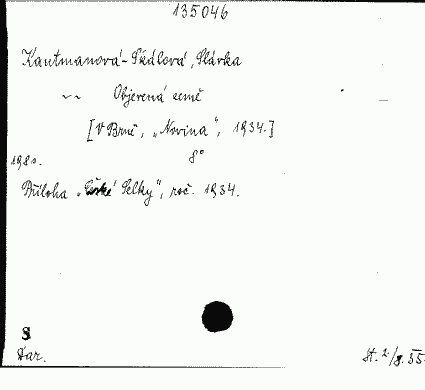 135046
Kautmanová-Skálová, Slávka
~~ Objevená země
[V Brně, „Novina", 1934.]
198s. 8°
Příloha „České Selky", roč. 1934.
S
Dar.
St. 2/8.35.